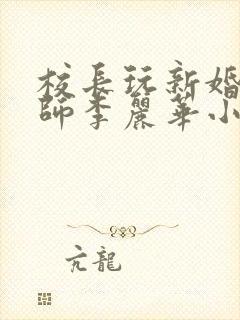 校長玩新婚
師李麗華小
亢龍